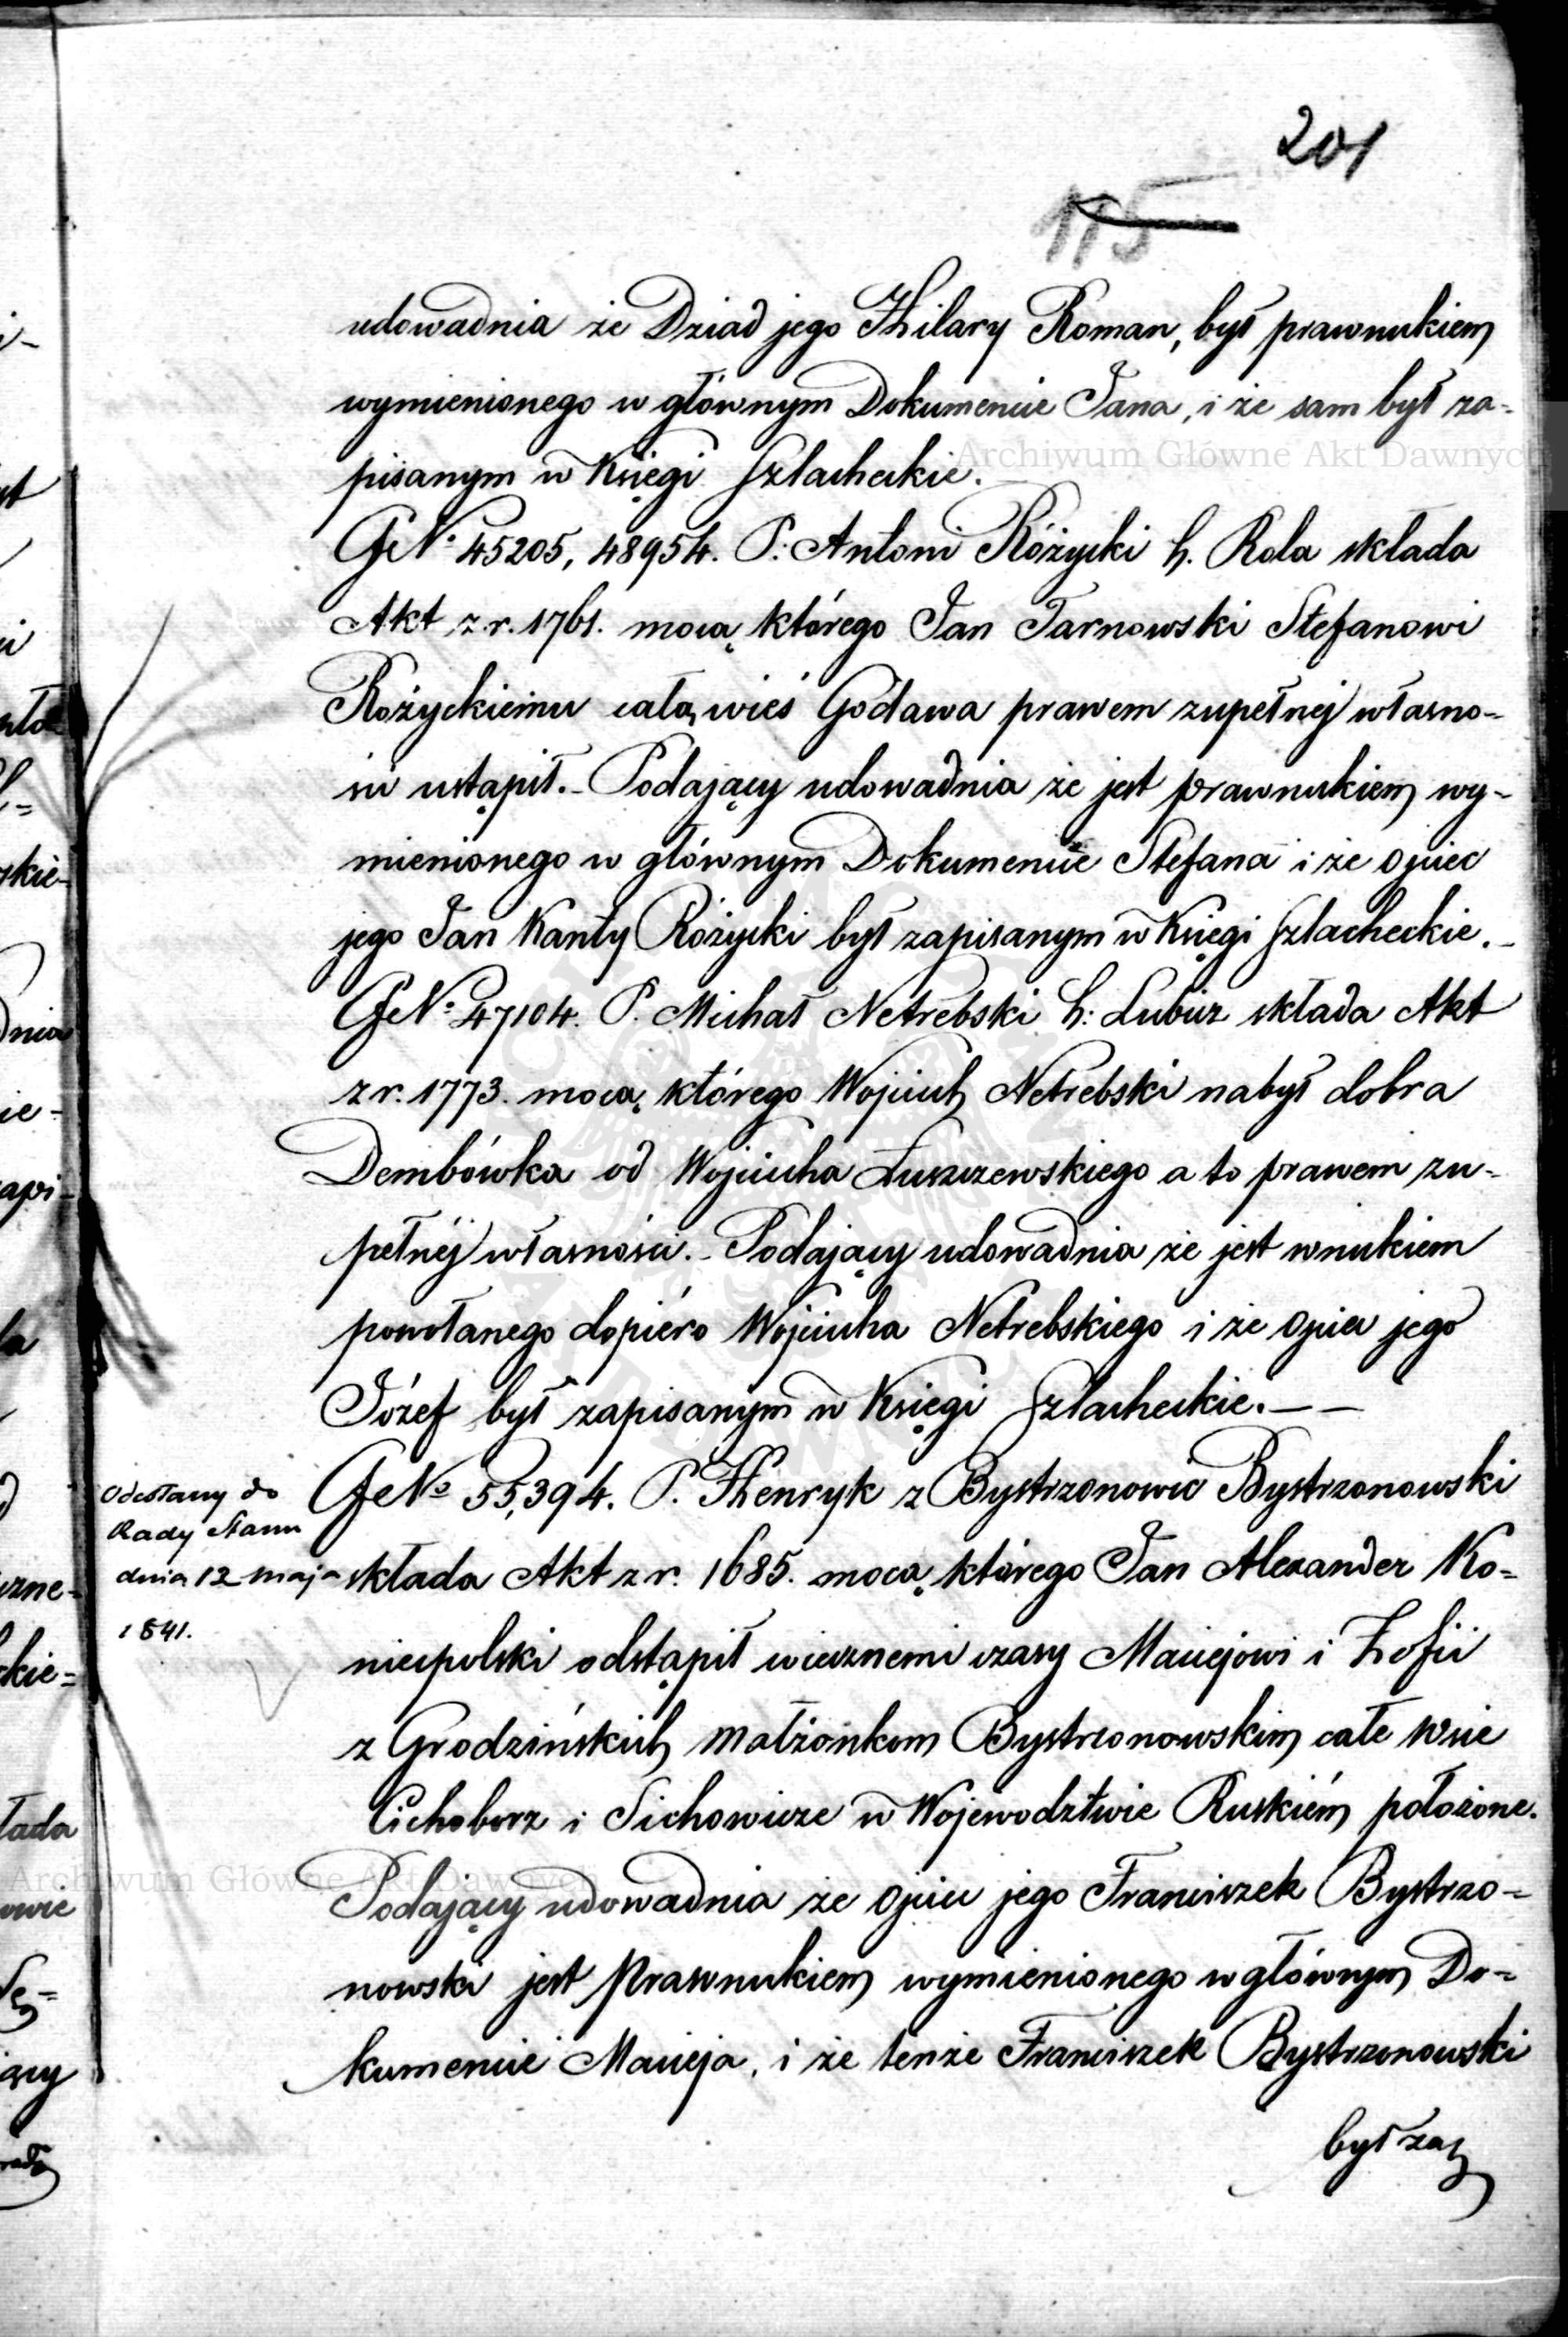 201
115
udowadnia że Dziad jego Hilary Roman, był prawnukiem
wymienionego w głównym Dokumencie Jana, i że sam był za-
pisanym w Księgi Szlacheckie.
Archiwum Główne Akt Dawnych
GNo 45205, 48954. P. Antoni Różycki h. Rola składa
Akt z r. 1761. mocą którego Jan Tarnowski Stefanowi
Rożyckiemu całą wieś Godawa prawem zupełnej własno-
ści ustąpił. - Podający udowadnia że jest prawnukiem wy-
mienionego w głównym Dokumencie Stefana i że Ojciec
jego Jan Kanty Różycki był zapisanym w Księgi Szlacheckie. -
GNo 47104. P. Michał Netrebski h: Lubicz składa Akt
z r. 1773. mocą którego Wojciech Netrebski nabył dobra
Dembówka od Wojciecha Łuszczewskiego a to prawem zu-
pełnéj własności. - Podający udowadnia że jest wnukiem
powołanego dopiéro Wojciecha Netrebskiego i że Ojciec jego
Józef był zapisanym w Księgi Szlacheckie. — —
Odesłany do
Rady Stanu
dnia 12 maja
1841.
GNo 55,394. P. Henryk z Bystrzonowic Bystrzonowski
składa Akt z r. 1685. mocą którego Jan Alexander Ko-
niecpolski odstąpił wiecznemi czasy Maciejowi i Zofii
z Grodzińskich małżonkom Bystrzonowskim całe wsie
Cichoborz i Sichowicze w Województwie Ruskiém położone.
Archiwum Główne Akt Dawnych
Podający udowadnia że Ojciec jego Franciszek Bystrzo-
nowski jest Prawnukiem wymienionego w głównym Do-
kumencie Macieja, i że tenże Franciszek Bystrzonowski
był za